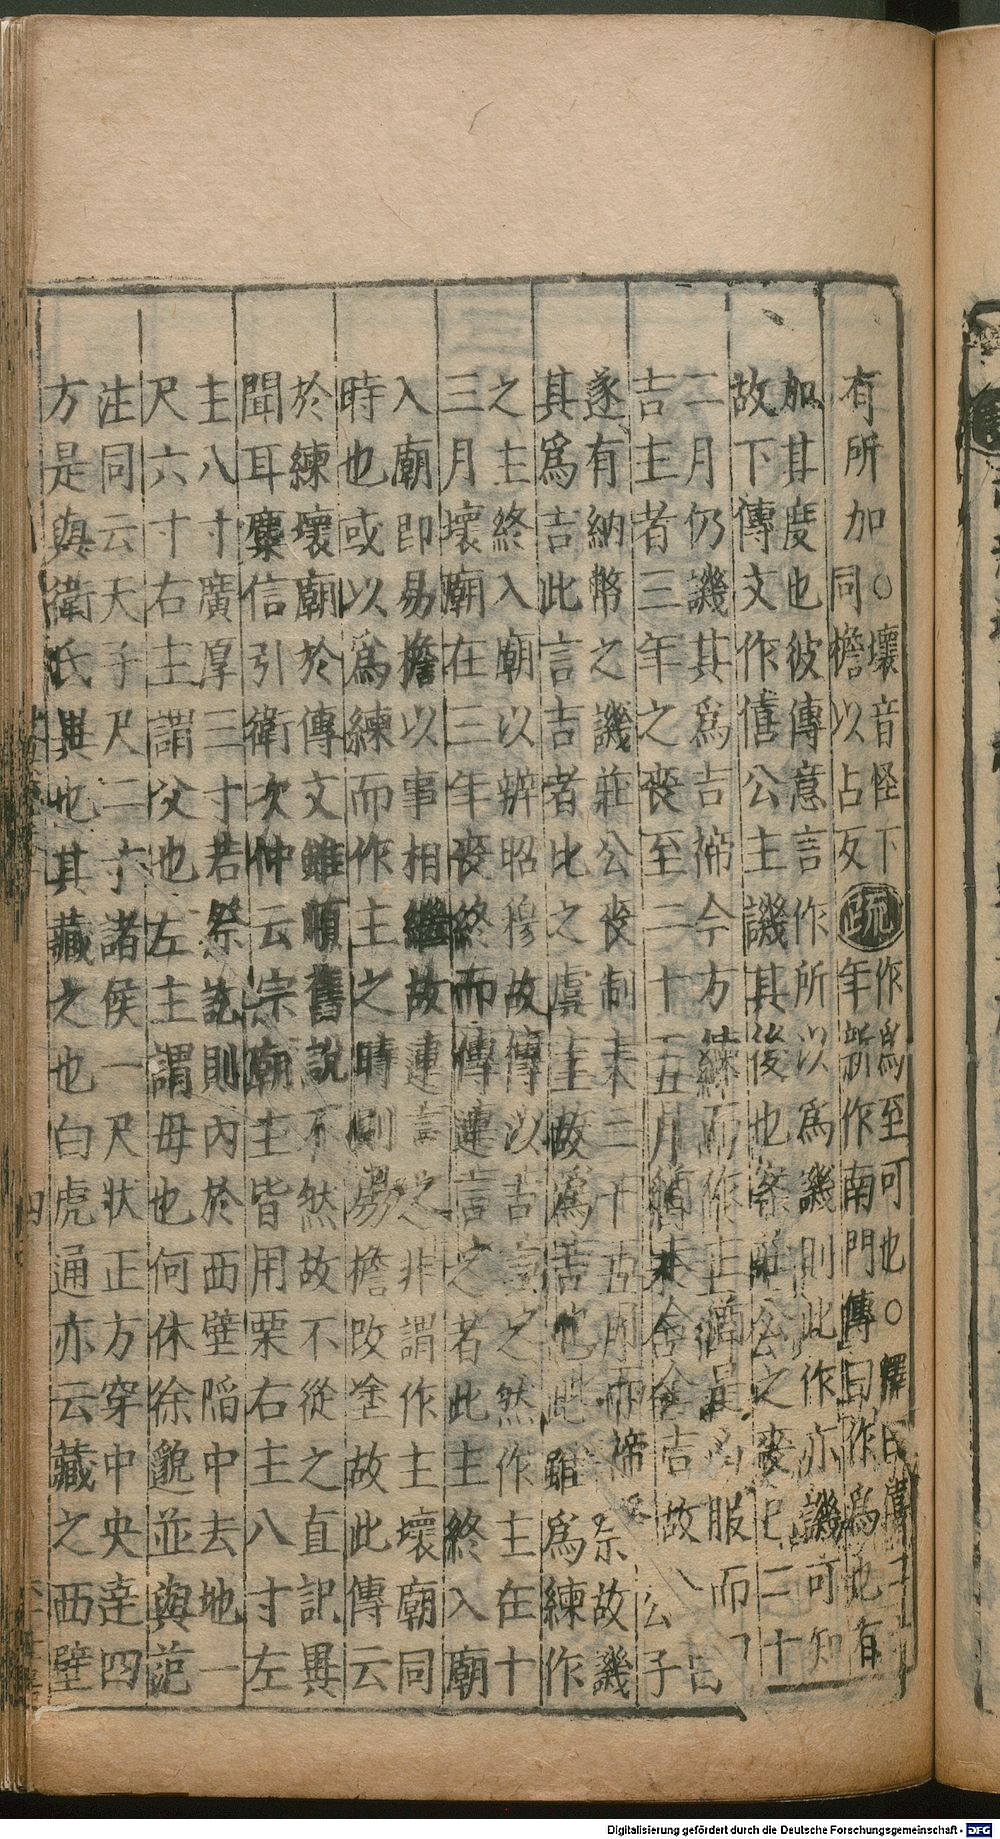 有所加
○壞音怪下
同檐以占反
疏
作爲至可也○釋曰
年新作南門傳曰作爲也有
加其度也彼傳意言作所以爲譏則此作亦譏可知
故下傳文作僖公主譏其後也案莊公之喪已二十
二月仍譏其爲吉禘今方練而作主猶是凶服而曰
吉主者三年之喪至二十五月猶未合全吉故公子
遂有納幣之譏莊公喪制未二十五月而禘祭故譏
其爲吉此言吉者比之虞主故爲吉也此雖爲練作
之主終入廟以辨昭穆故傳以吉言之然作主在十
三月壞廟在三年喪終而傳連言之者此主終入廟
入廟即易檐以事相繼故連言之非謂作主壞廟同
時也或以爲練而作主之時則易檐改塗故此傳云
於練壞廟於傳文雖順舊說不然故不從之直記異
聞耳麋信引衛次仲云宗廟主皆用栗右主八寸左
主八寸廣厚三寸若祭訖則內於西壁陷中去地一
尺六寸右主謂父也左主謂母也何休徐邈並與范
注同云天子尺二寸諸侯一尺狀正方穿中央達四
方是與衛氏異也其藏之也白虎通亦云藏之西壁
四
Digitalisierung gefördert durch die Deutsche Forschungsgemeinschaft - DFG